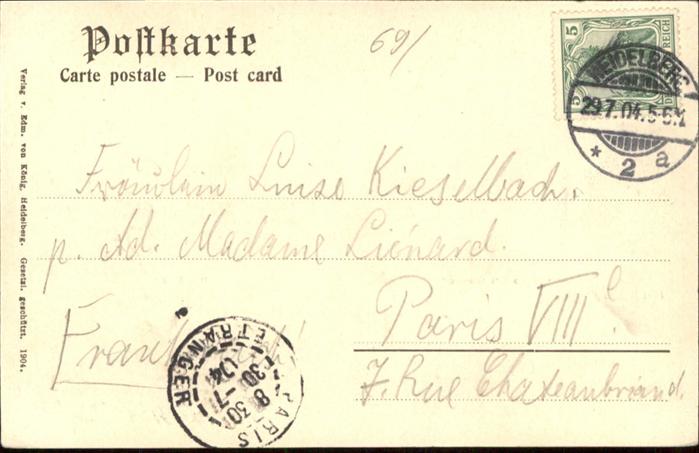 Postkarte
Carte postale — Post card
69/
5
REICH
HEIDELBERG
29.7.04.5-6N.
* 2 a
Fräulein Luise Kieselbach.
p. Ad. Madame Liénard.
Paris VIIIe.
7. Rue Chateaubriand.
PARIS
ETRANGER
8 30
30 -7
04
Verlag v. Edm. von König, Heidelberg. Gesetzl. geschützt. 1904.